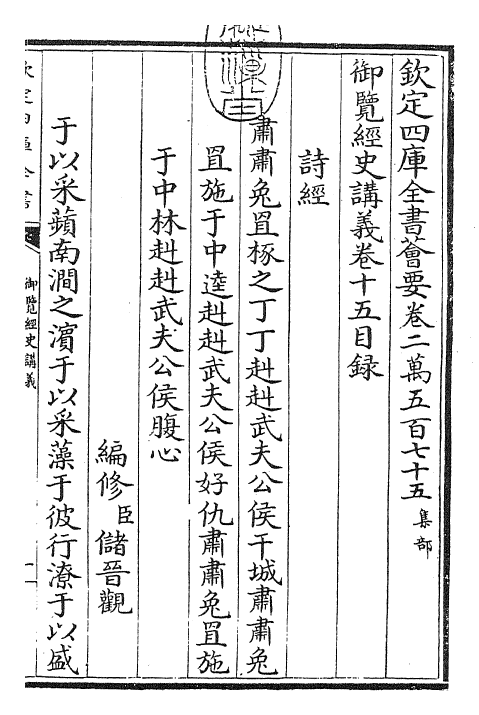 欽定四庫全書薈要卷二萬五百七十五集部
御覽經史講義卷十五目録
詩經
肅肅兔罝椓之丁丁赳赳武夫公侯干城肅肅兔
罝施于中逵赳赳武夫公侯好仇肅肅兔罝施
于中林赳赳武夫公侯腹心
編修臣儲晉觀
于以采蘋南澗之濱于以采藻于彼行潦于以盛
御覽經史講義